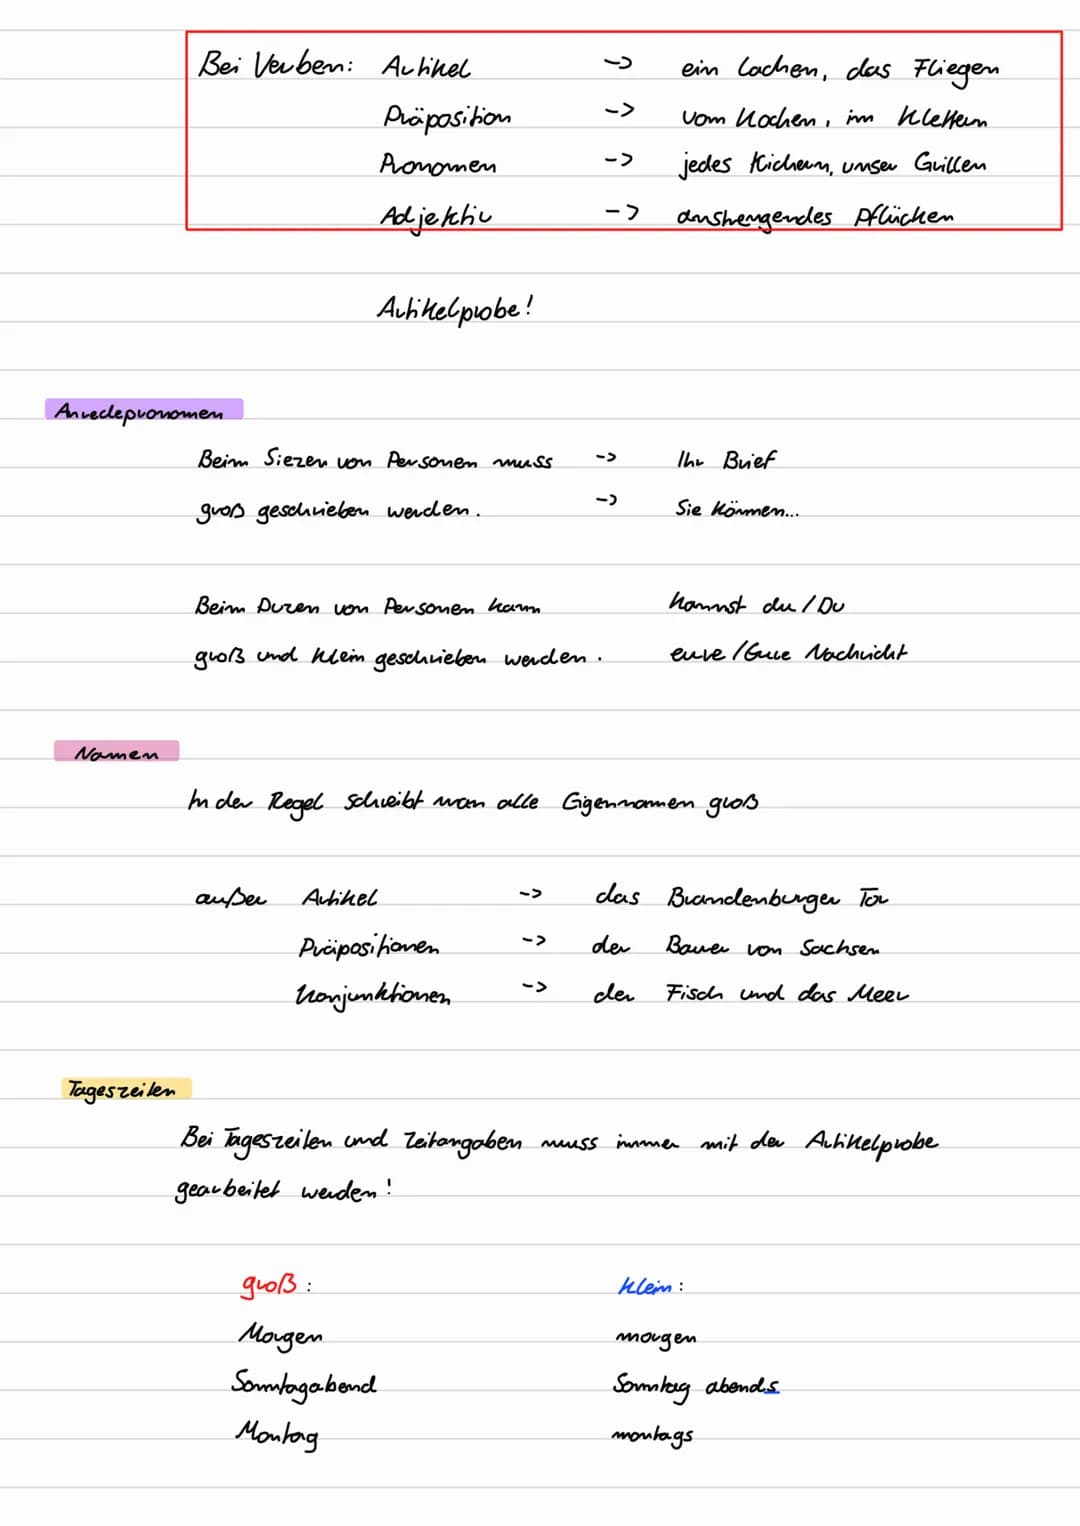 Bei Verben: Artikel -> ein Lachen, das Fliegen
Präposition -> vom Kochen, im Klettern
Pronomen -> jedes Kichern, unser Grillen
Adjektiv -> anstrengendes Pflücken
Artikelprobe!
Anredepronomen
Beim Siezen von Personen muss -> Ihr Brief
groß geschrieben werden. -> Sie können...
Beim Duzen von Personen kann kannst du / Du
groß und klein geschrieben werden. eure / Eure Nachricht
Namen
In der Regel schreibt man alle Eigennamen groß
außer Artikel -> das Brandenburger Tor
Präpositionen -> der Bauer von Sachsen
Konjunktionen -> der Fisch und das Meer
Tageszeiten
Bei Tageszeiten und Zeitangaben muss immer mit der Artikelprobe
gearbeitet werden!
groß: klein:
Morgen morgen
Sonntagabend Sonntag abends
Montag montags